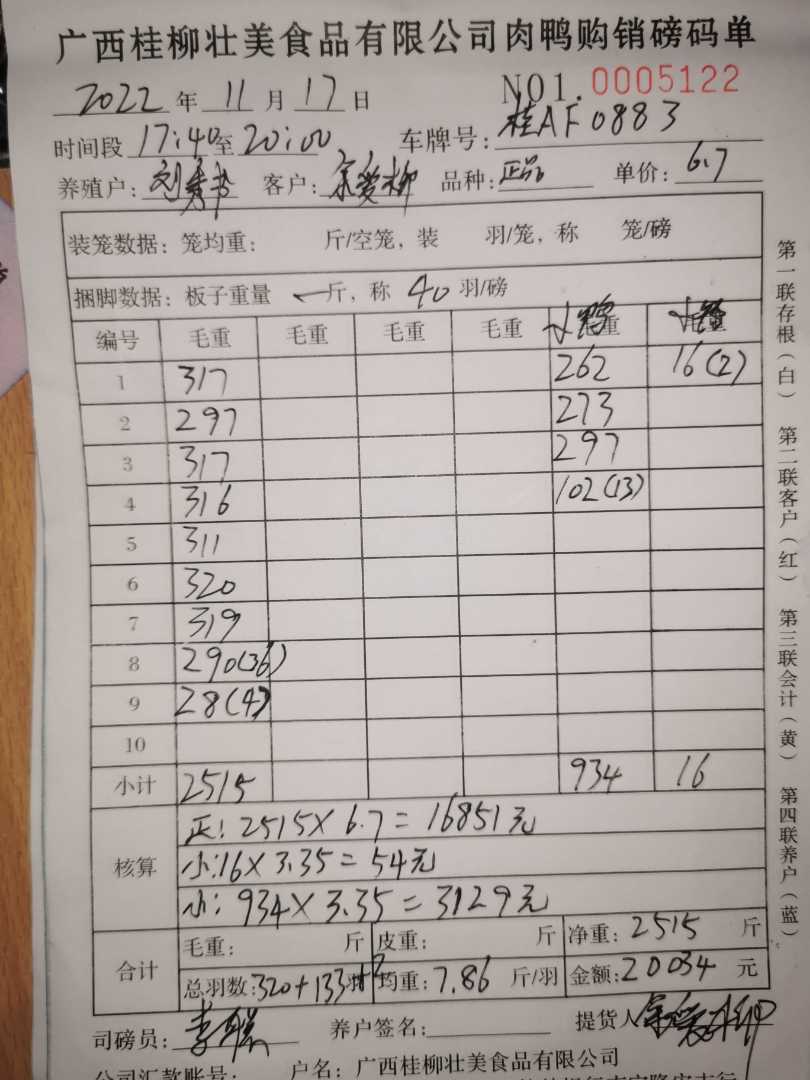 广西桂柳壮美食品有限公司肉鸭购销磅码单
2022 年 11 月 17 日 NO1. 0005122
时间段 17:40 至 20:00 车牌号: 桂AF0883
养殖户: 刘秀书 客户: 爱柳 品种: 正品 单价: 6.7
装笼数据: 笼均重: 斤/空笼, 装 羽/笼, 称 笼/磅
捆脚数据: 板子重量 斤, 称 40 羽/磅
编号 毛重 毛重 毛重 毛重 小鸭
1 317 262 16(2)
2 297 273
3 317 297
4 316 102(13)
5 311
6 320
7 319
8 290(36)
9 28(4)
10
小计 2515 934 16
核算 正: 2515X6.7=16851元
小:16X3.35=54元
小: 934X3.35=3129元
合计 毛重: 斤 皮重: 斤 净重: 2515 斤
总羽数: 320+133+2 均重: 7.86 斤/羽 金额: 20034 元
司磅员: 李 养户签名: 提货人 爱柳
公司汇款账号: 户名: 广西桂柳壮美食品有限公司
第一联存根(白) 第二联客户(红) 第三联会计(黄) 第四联养户(蓝)